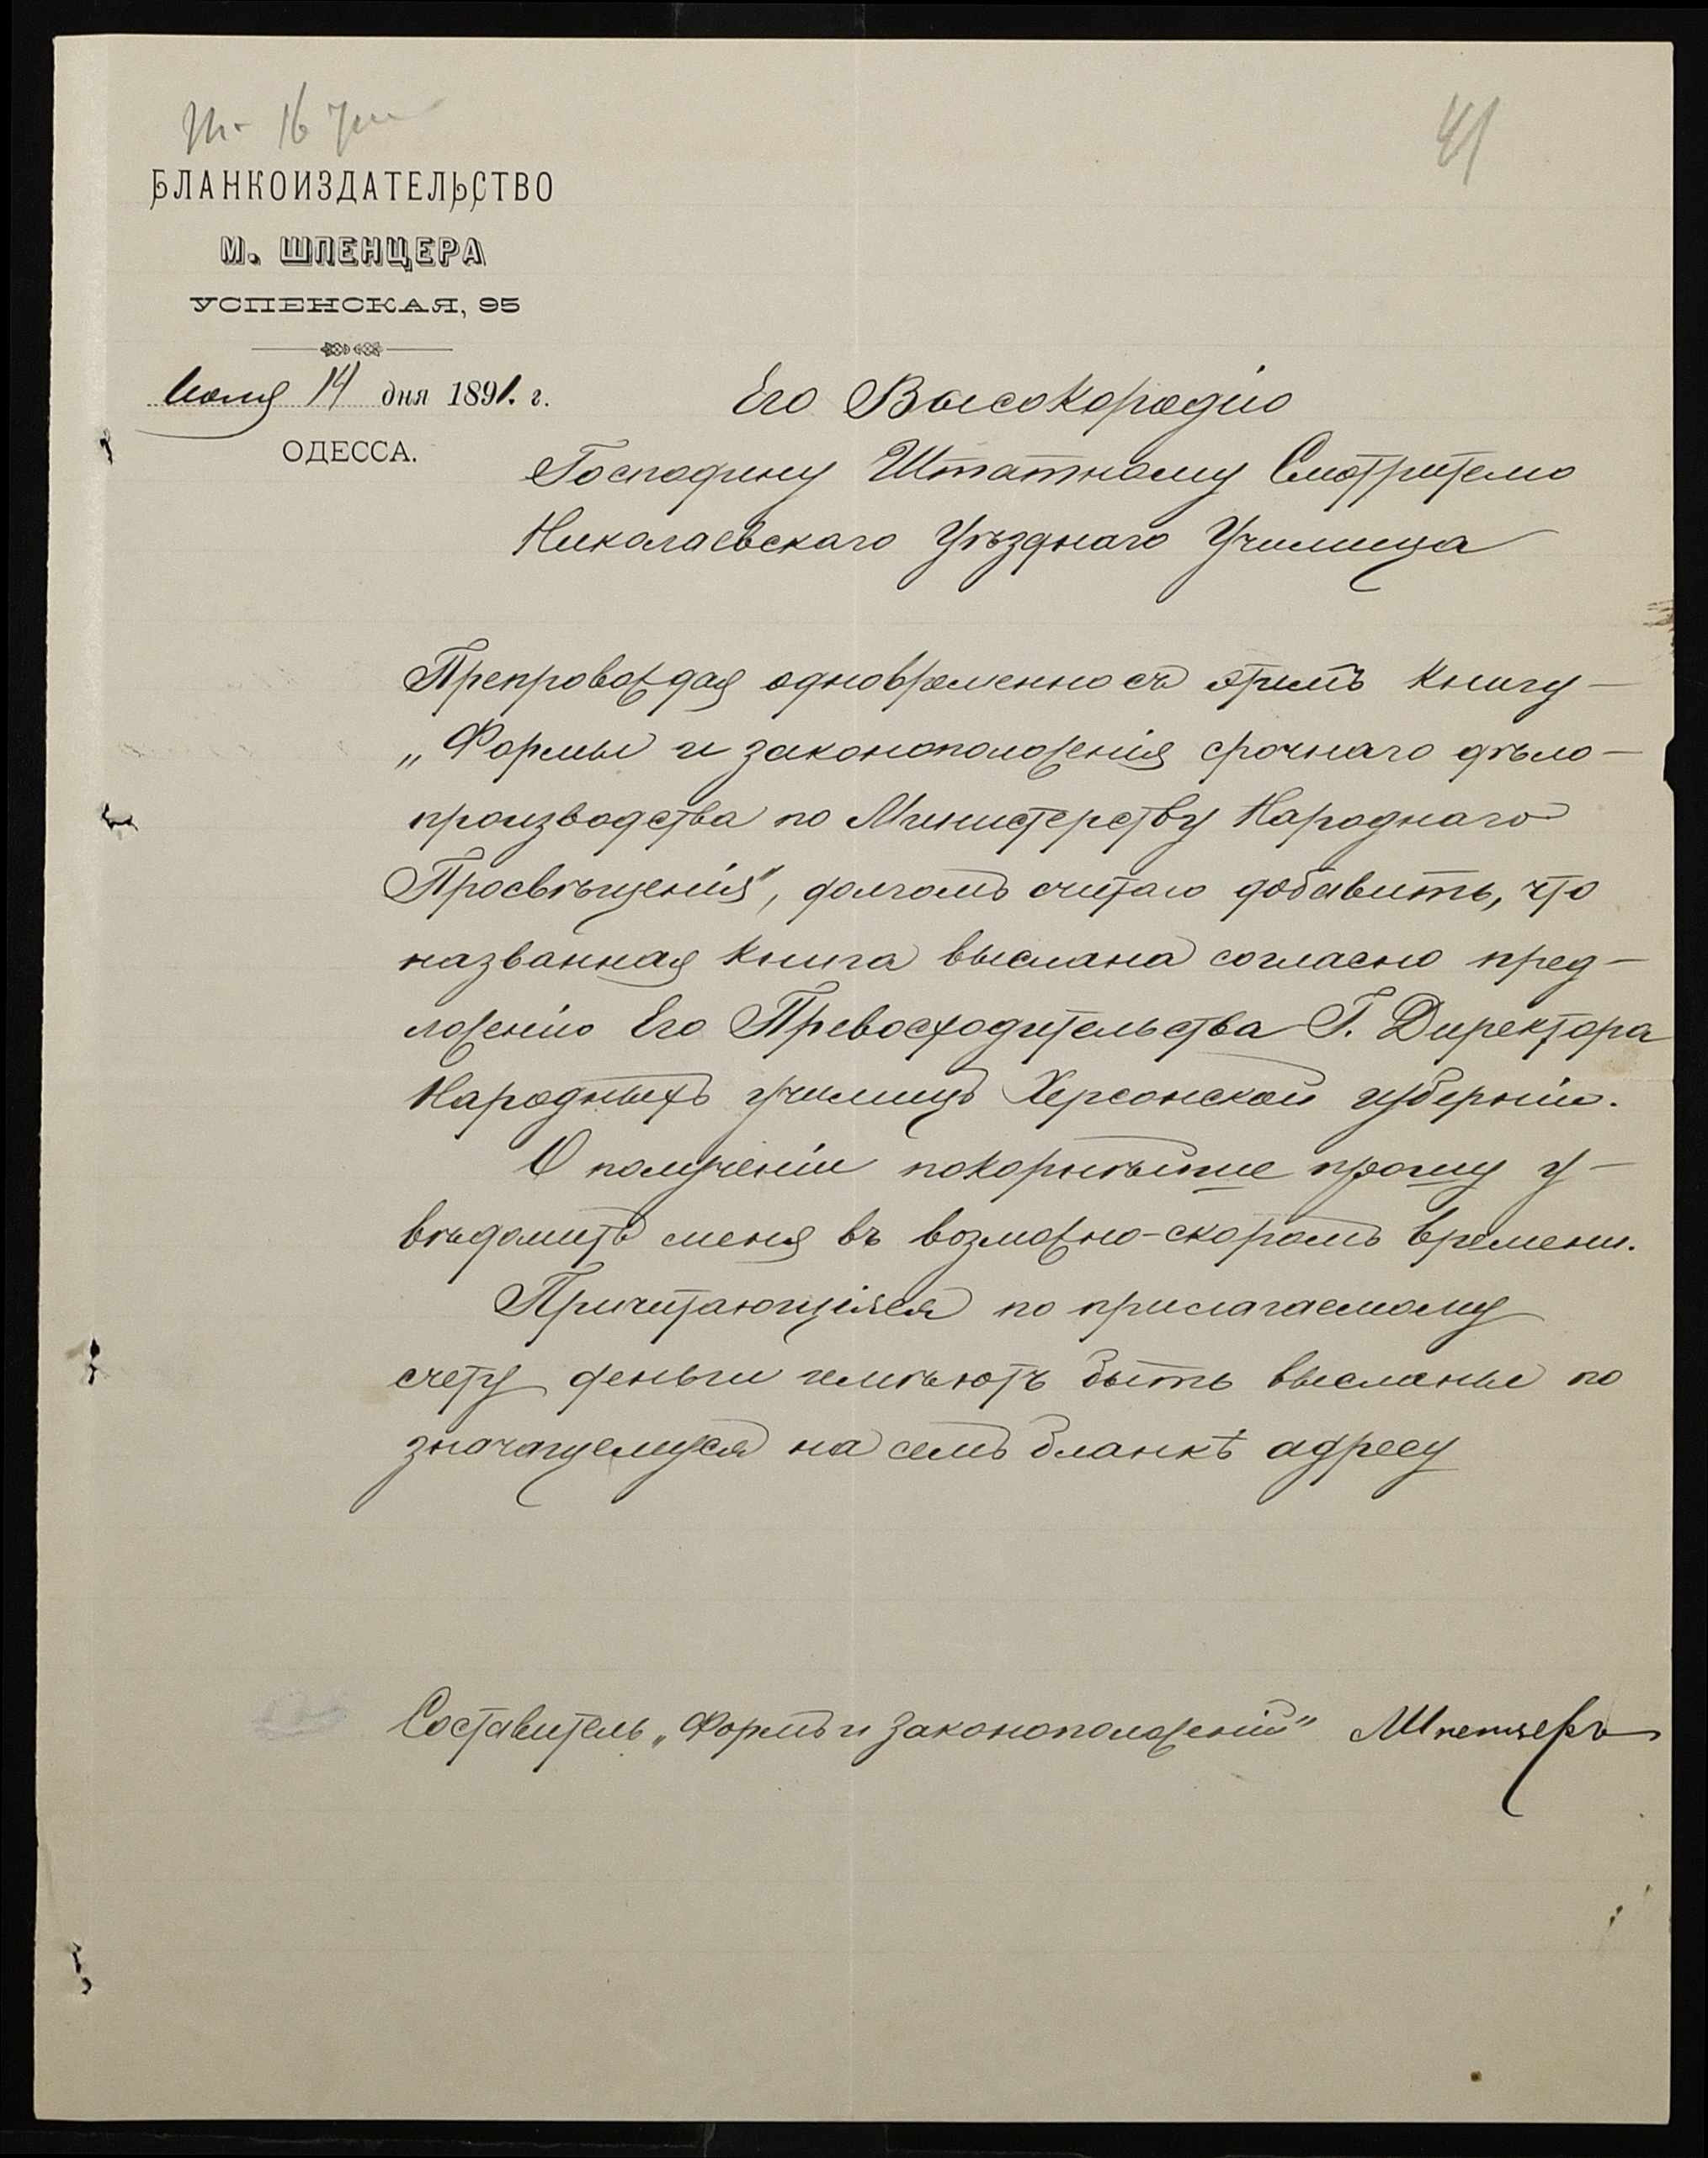 16
41
БЛАНКОИЗДАТЕЛЬСТВО
М. ШПЕНЦЕРА
УСПЕНСКАЯ, 95
Июля 14 дня 1891. г.
ОДЕССА.
Его Высокородію
Господину Штатному Смотрителю
Николаевскаго Уѣзднаго Училища
Препровождая одновременно съ этимъ книгу —
„Формы и законоположенія срочнаго дѣло —
производства по Министерству Народнаго
Просвѣщенія", долгомъ считаю добавить, что
названная книга выслана согласно пред —
ложенію Его Превосходительства Г. Директора
Народныхъ училищъ Херсонской губерніи.
О полученіи покорнѣйше прошу у —
вѣдомить меня въ возможно-скоромъ времени.
Причитающіяся по прилагаемому
счету деньги имѣютъ быть высланы по
значащемуся на семъ бланкѣ адресу
Составитель „Формъ и законоположеній" МШпенцеръ